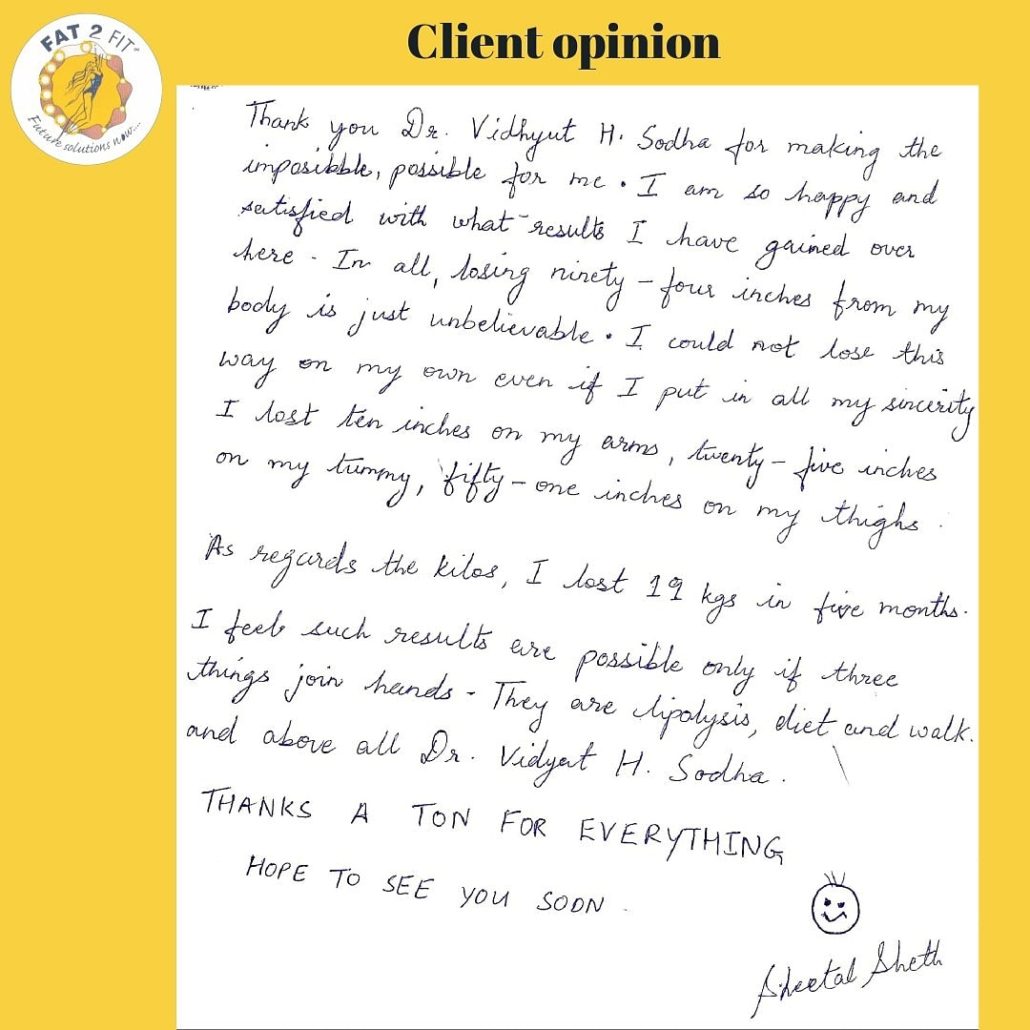 FAT 2 FIT
Future solutions now....
Client opinion
Thank you Dr. Vidhyut H. Sodha for making the
imposibble, possible for me. I am so happy and
satisfied with what results I have gained over
here. In all, losing ninety-four inches from my
body is just unbelievable. I could not lose this
way on my own even if I put in all my sincerity
I lost ten inches on my arms, twenty-five inches
on my tummy, fifty-one inches on my thighs.
As regards the kilos, I lost 19 kgs in five months.
I feel such results are possible only if three
things join hands - They are lipolysis, diet and walk.
and above all Dr. Vidyut H. Sodha.
THANKS A TON FOR EVERYTHING
HOPE TO SEE YOU SOON.
Sheetal Sheth